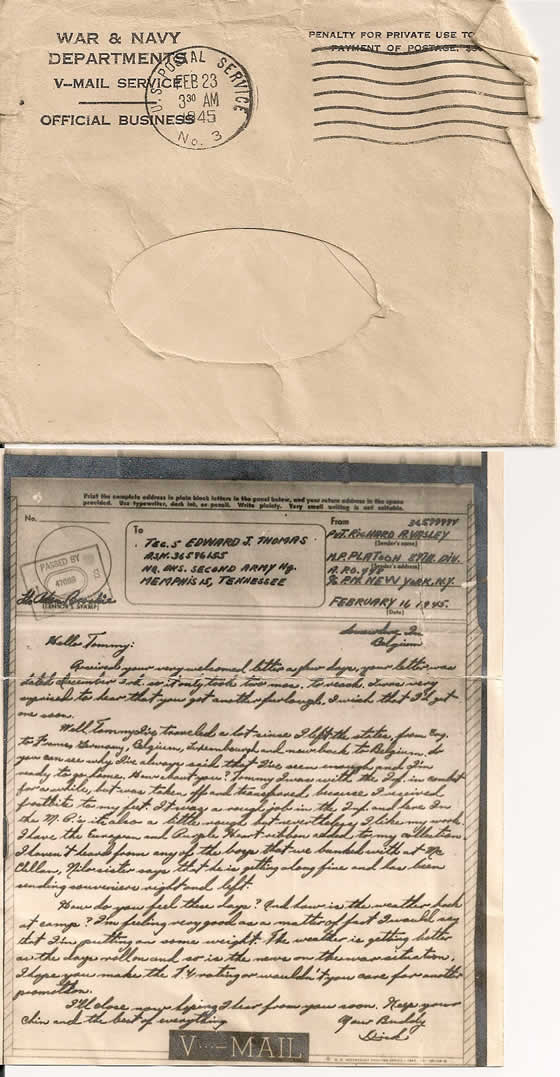 WAR & NAVY
DEPARTMENTS
V-MAIL SERVICE
OFFICIAL BUSINESS
U.S. POSTAL SERVICE
FEB 23
3 30 AM
1945
No. 3
PENALTY FOR PRIVATE USE TO
PAYMENT OF POSTAGE, $30
Print the complete address in plain block letters in the panel below, and your return address in the space
provided. Use typewriter, dark ink, or pencil. Write plainly. Very small writing is not suitable.
No.
PASSED BY
(CENSOR'S STAMP)
To
TEC. 5 EDWARD J. THOMAS
ASN. 36596155
HQ. DHS. SECOND ARMY HQ.
MEMPHIS 15, TENNESSEE
From
PVT. RICHARD A.
(Sender's name)
M.P. PLATOON DIV.
(Sender's address)
A.P.O.
% P.M. NEW YORK, N.Y.
FEBRUARY 16 1945.
(Date)
Somewhere In
Belgium
Hello Tommy:
Received your very welcomed letter a few days, your letter was
dated December 2nd. so it only took two mos. to reach. I was very
surprised to hear that you got another furlough. I wish that I'd get
one soon.
Well Tommy I've traveled a lot since I left the states, from Eng.
to France, Germany, Belgium, Luxembourg and now back to Belgium. So
you can see why I've always said that I've seen enough and I'm
ready to go home. How about you? Tommy I was with the Inf. in combat
for a while, but was taken off and transferred because I received
frostbite to my feet. It was a rough job in the Inf. and here In
the M.P.'s it's also a little rough but nevertheless I like my work.
I have the European and Purple Heart ribbon added to my collection.
I haven't heard from any of the boys that we bunked with at Mc
Clellan, sister says that he is getting along fine and has been
sending souvenirs right and left.
How do you feel these days? And how is the weather back
at camp? I'm feeling very good as a matter of fact I would say
that I'm putting on some weight. The weather is getting better
as the days roll on and so is the news on the war situation.
I hope you make the T/4 rating or wouldn't you care for another
promotion.
I'll close now hoping I hear from you soon. Keep your
chin and the best of everything
Your Buddy
Dick
V-MAIL